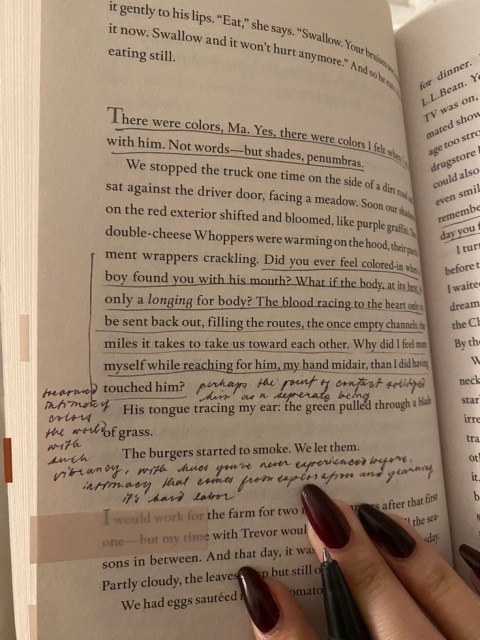 it gently to his lips. "Eat," she says. "Swallow. Your bruises are
it now. Swallow and it won't hurt anymore." And so he
eating still.
There were colors, Ma. Yes, there were colors I felt when
with him. Not words—but shades, penumbras.
We stopped the truck one time on the side of a dirt road
sat against the driver door, facing a meadow. Soon our
on the red exterior shifted and bloomed, like purple graffiti.
double-cheese Whoppers were warming on the hood, their
ment wrappers crackling. Did you ever feel colored-in when
boy found you with his mouth? What if the body, at its best,
only a longing for body? The blood racing to the heart only
be sent back out, filling the routes, the once empty channels, the
miles it takes to take us toward each other. Why did I feel more
myself while reaching for him, my hand midair, than I did having
touched him? perhaps the point of contact solidified
him as a seperate being
intimacy
colors
the world
with
such
vibrancy, with hues you've never experienced before.
intimacy that comes from exploration and yearning
it's hard labor
His tongue tracing my ear: the green pulled through a blade
of grass.
The burgers started to smoke. We let them.
I would work for the farm for two after that first
one—but my time with Trevor
sons in between. And that day, it was
Partly cloudy, the leaves but still
We had eggs sautéed
for dinner.
L.L.Bean.
TV was on,
mated show
age too
drugstore
could also
even
day you
I
before
I
dream
the
By the